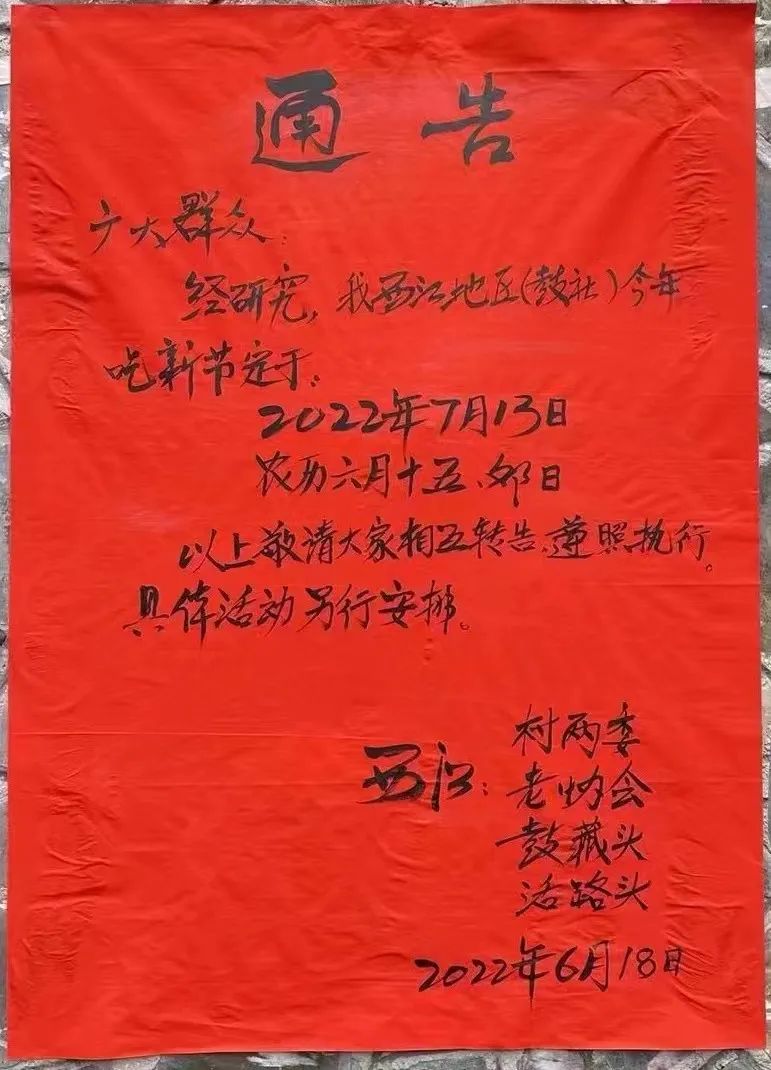 通告
广大群众:
经研究,我西江地区(鼓社)今年
吃新节定于:
2022年7月13日
农历六月十五、卯日
以上敬请大家相互转告、遵照执行。
具体活动另行安排。
西江:
村两委
老协会
鼓藏头
活路头
2022年6月18日